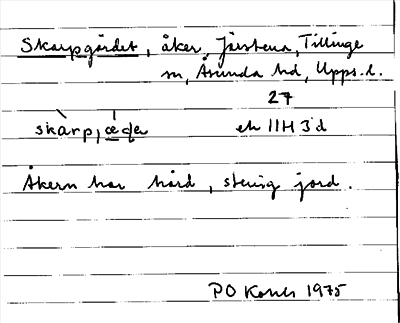 Skarpgärdet, åker, Järstena, Tillinge
sn, Åsunda hd, Upps. l.
27
skàrp,jæ̀ɖe ek 11H 3 d
Åkern har hård, stenig jord.
PO 1975